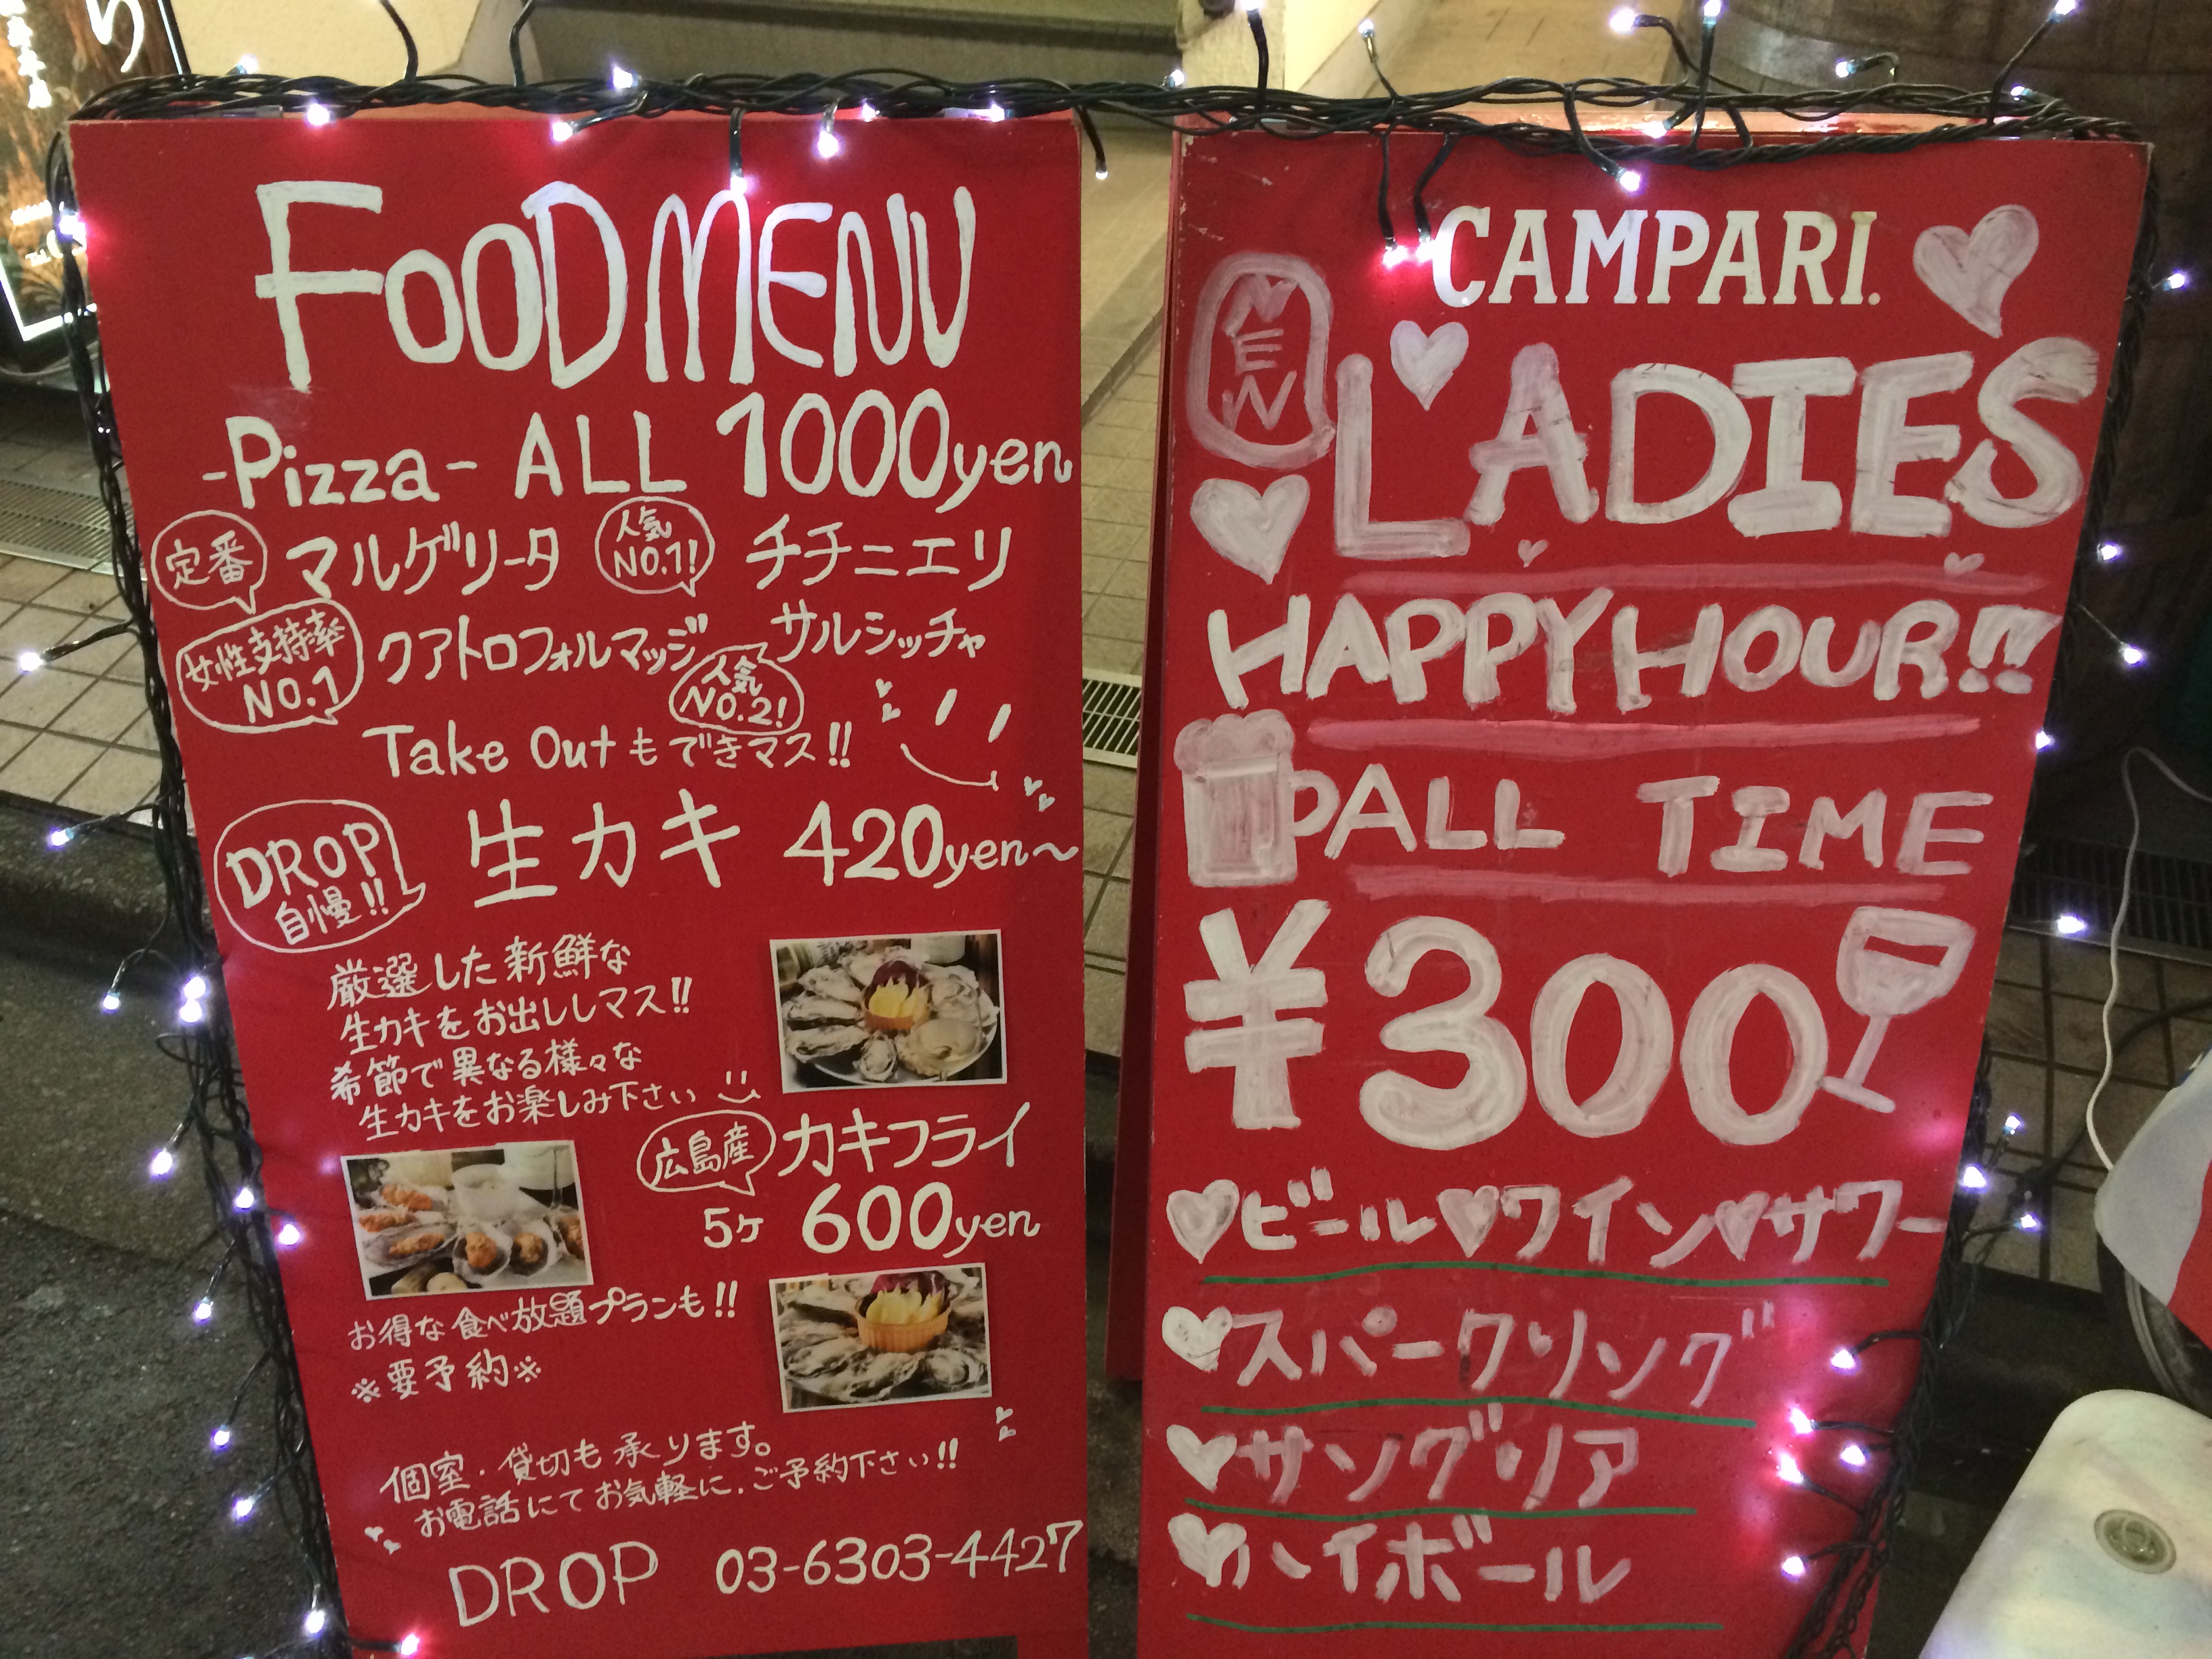 FOOD MENU
-Pizza- ALL 1000yen
定番 マルゲリータ 人気 NO.1! チチニエリ
女性支持率 NO.1 クアトロフォルマッジ 人気 NO.2! サルシッチャ
Take Out もできマス!!
DROP 自慢!! 生カキ 420yen〜
厳選した新鮮な
生カキをお出ししマス!!
希節で異なる様々な
生カキをお楽しみ下さい
広島産 カキフライ
5ヶ 600yen
お得な食べ放題プランも!!
※要予約※
個室・貸切も承ります。
お電話にてお気軽に、ご予約下さい!!
DROP 03-6303-4427
CAMPARI.
NEW
LADIES
HAPPY HOUR!!
ALL TIME
¥300
ビール♥ワイン♥サワー
スパークリング
サングリア
ハイボール